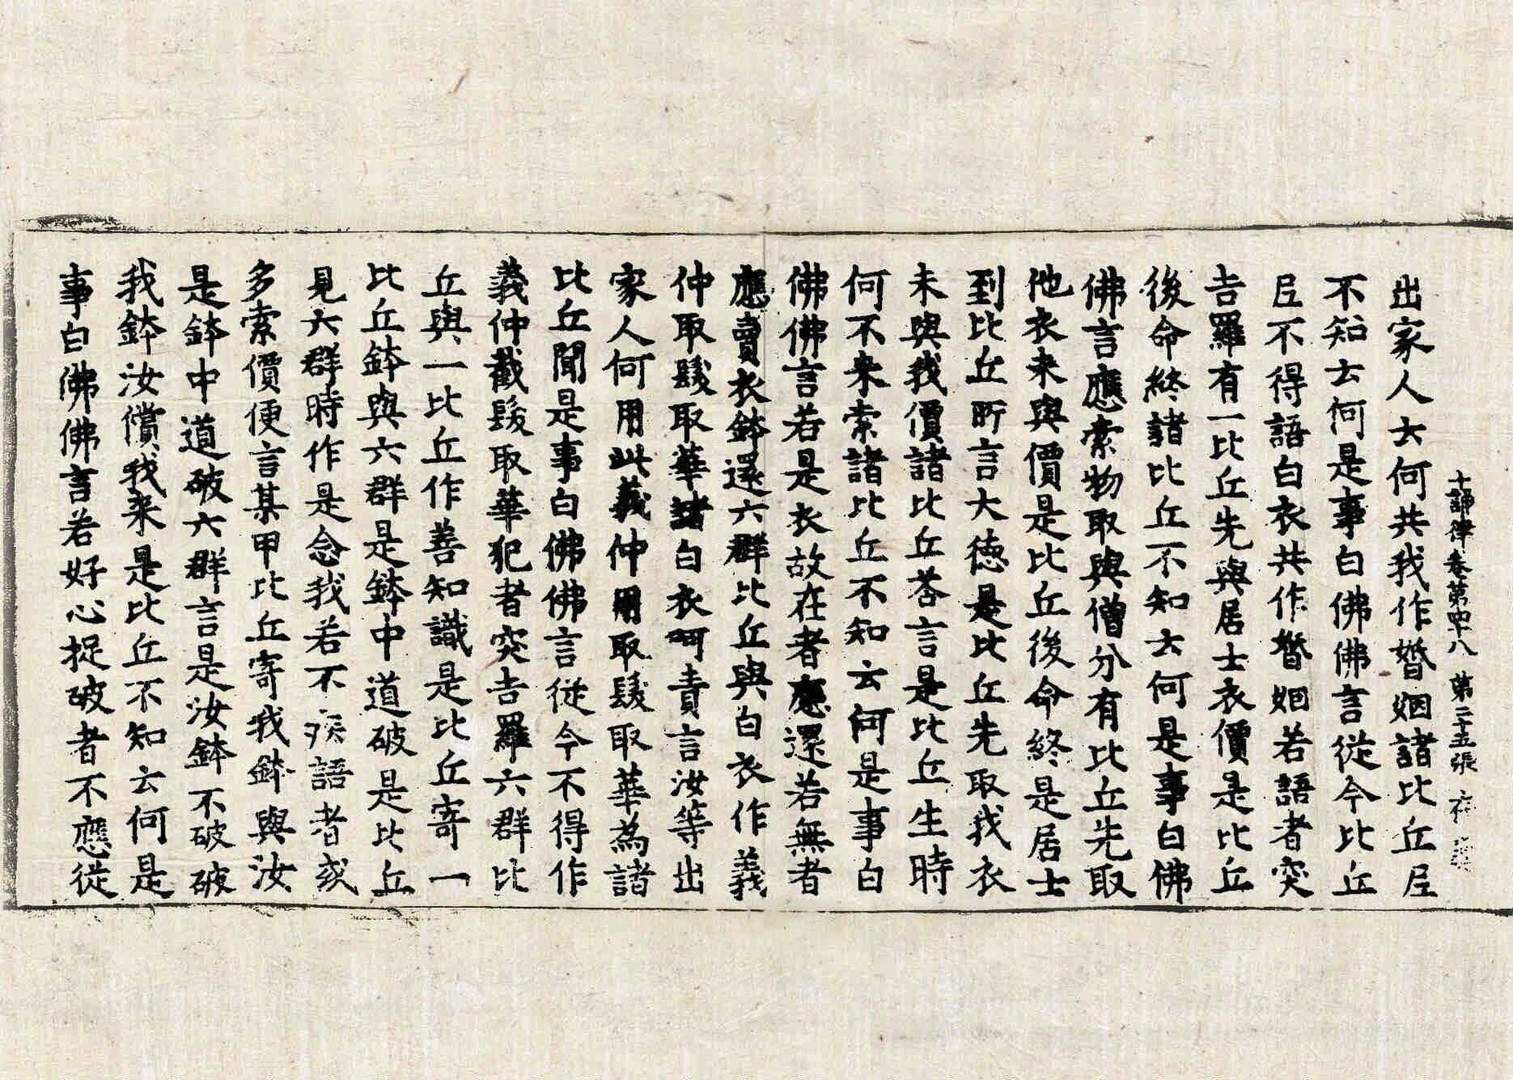 十誦律卷第四十八 第二十五張
出家人云何共我作婚姻諸比丘尼
不知云何是事白佛佛言從今比丘
尼不得語白衣共作婚姻若語者突
吉羅有一比丘先與居士衣價是比丘
後命終諸比丘不知云何是事白佛
佛言應索物取與僧分有比丘先取
他衣未與價是比丘後命終是居士
到比丘所言大德是比丘先取我衣
未與我價諸比丘荅言是比丘生時
何不來索諸比丘不知云何是事白
佛佛言若是衣故在者應還若無者
應賣衣鉢還六群比丘與白衣作義
仲取髮取華諸白衣呵責言汝等出
家人何用此義仲用取髮取華為諸
比丘聞是事白佛佛言從今不得作
義仲截髮取華犯者突吉羅六群比
丘與一比丘作善知識是比丘寄一
比丘鉢與六群是鉢中道破是比丘
見六群時作是念我若不疾語者或
多索價便言某甲比丘寄我鉢與汝
是鉢中道破六群言是汝鉢不破破
我鉢汝償我來是比丘不知云何是
事白佛佛言若好心捉破者不應從